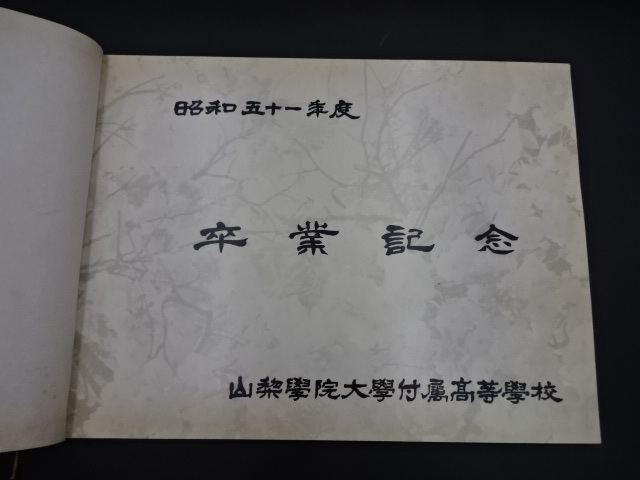 昭和五十一年度
卒業記念
山梨學院大學付属髙等學校